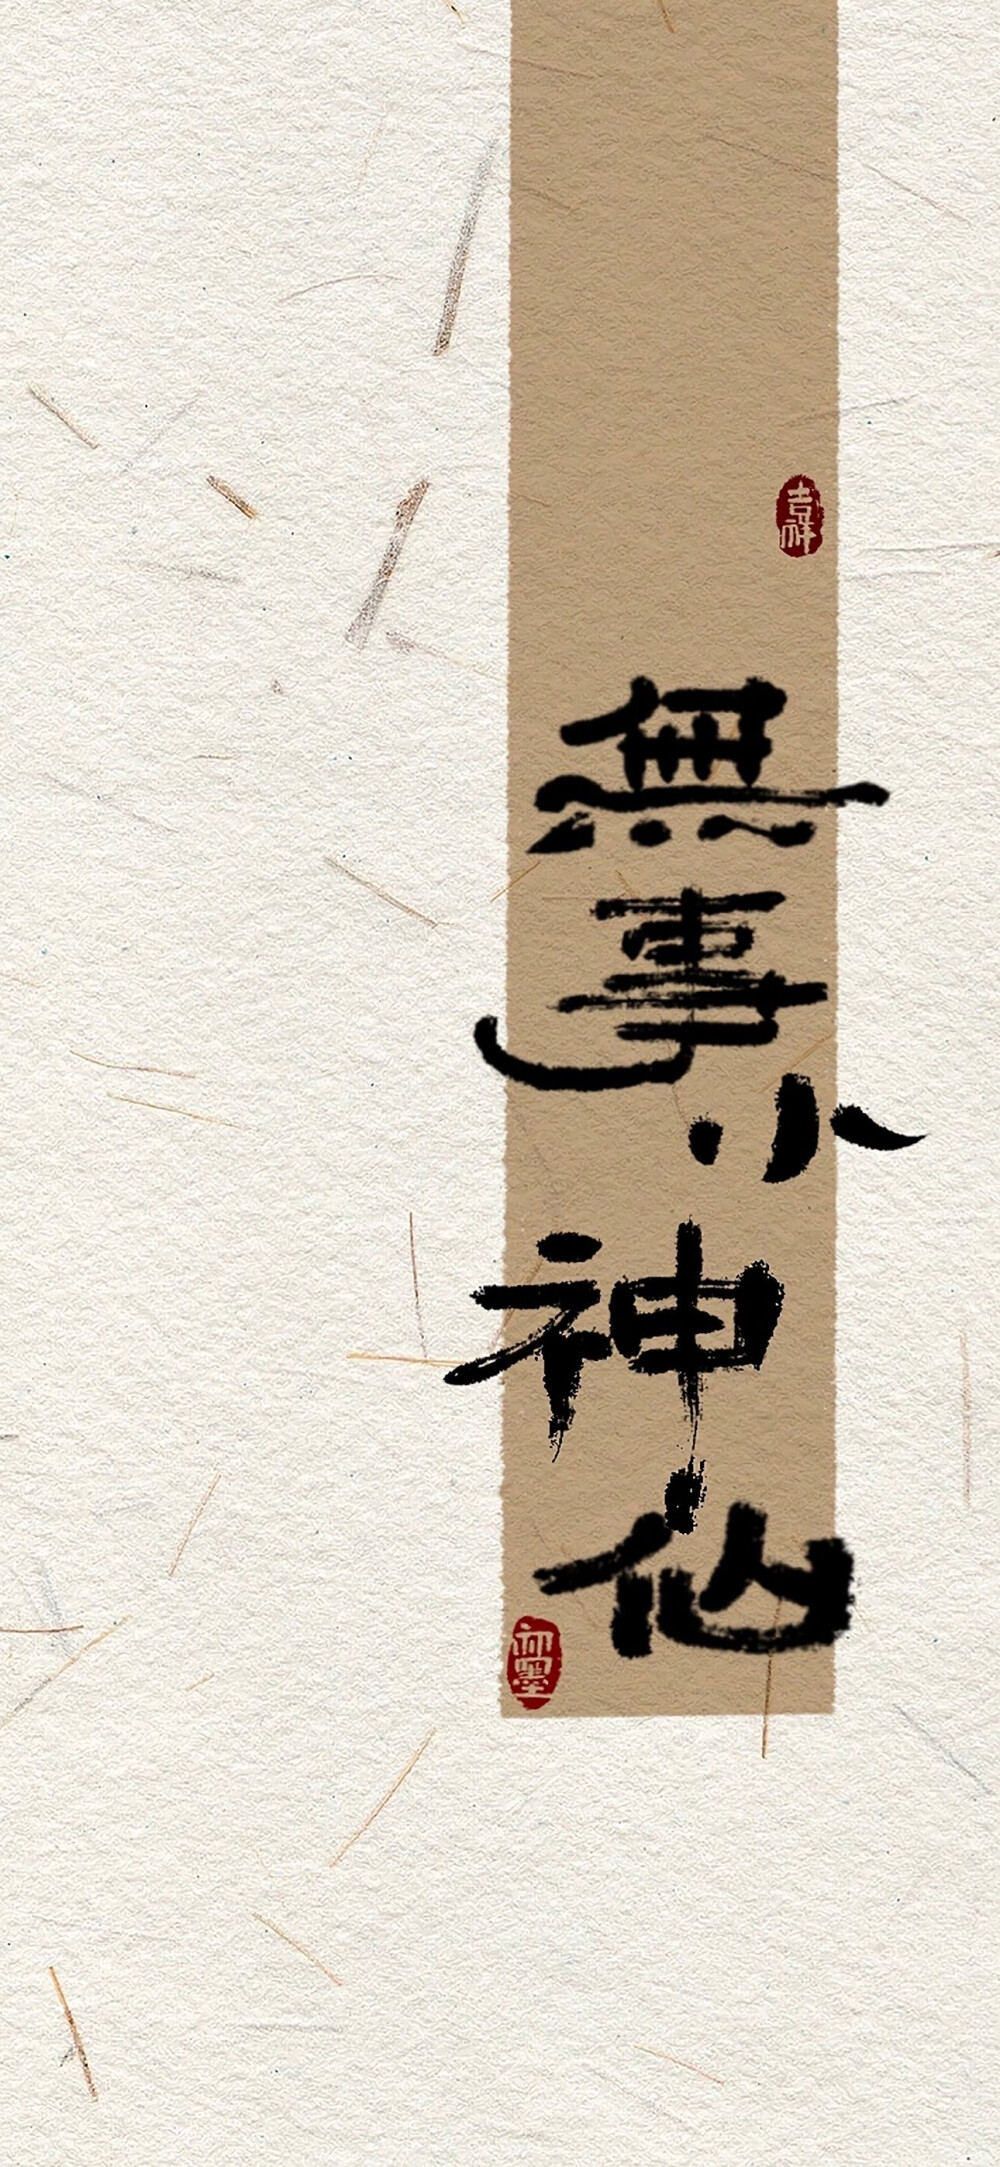 吉祥
無事小神仙
初墨